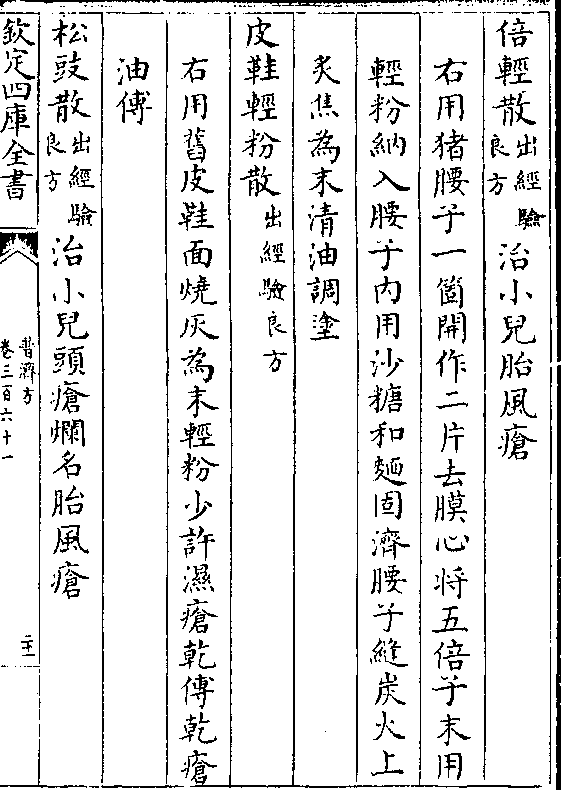 倍輕散出經驗良方 治小兒胎風瘡
右用猪腰子一箇開作二片去膜心将五倍子末用
輕粉納入腰子内用沙糖和麵固濟腰子縫炭火上
炙焦為末清油調塗
皮鞋輕粉散出經驗良方
右用舊皮鞋面燒灰為末輕粉少許濕瘡乾傅乾瘡
油傅
松豉散出經驗良方 治小兒頭瘡爛名胎風瘡
欽定四庫全書
普濟方
卷三百六十一
二十一